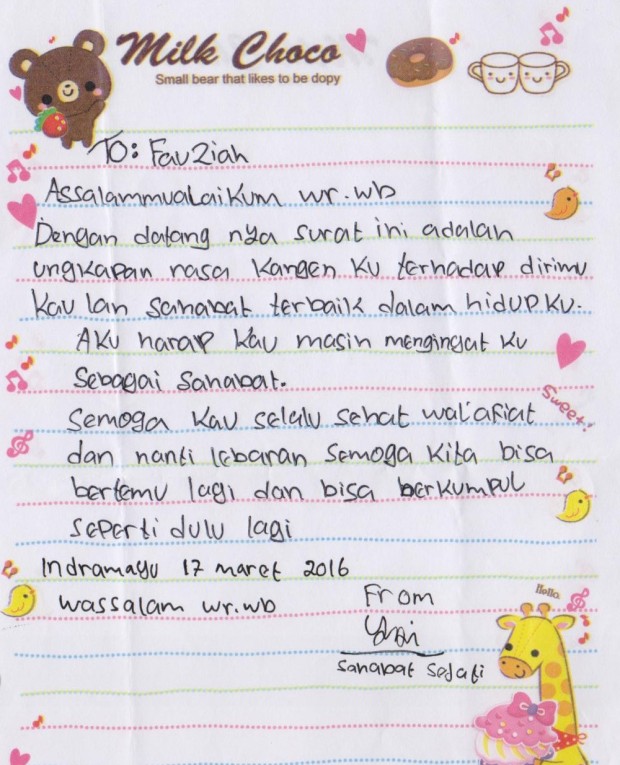 Milk Choco
Small bear that likes to be dopy
To: Fauziah
Assalammualaikum wr.wb
Dengan datang nya surat ini adalah
ungkapan rasa kangen ku terhadap dirimu
kau lah sahabat terbaik dalam hidup ku.
Aku harap kau masih mengingat ku
Sebagai sahabat.
Semoga kau selalu sehat wal'afiat
dan nanti lebaran semoga kita bisa
bertemu lagi dan bisa berkumpul
seperti dulu lagi
Indramayu 17 maret 2016
wassalam wr.wb
From
sahabat sejati
Sweet!
Hello